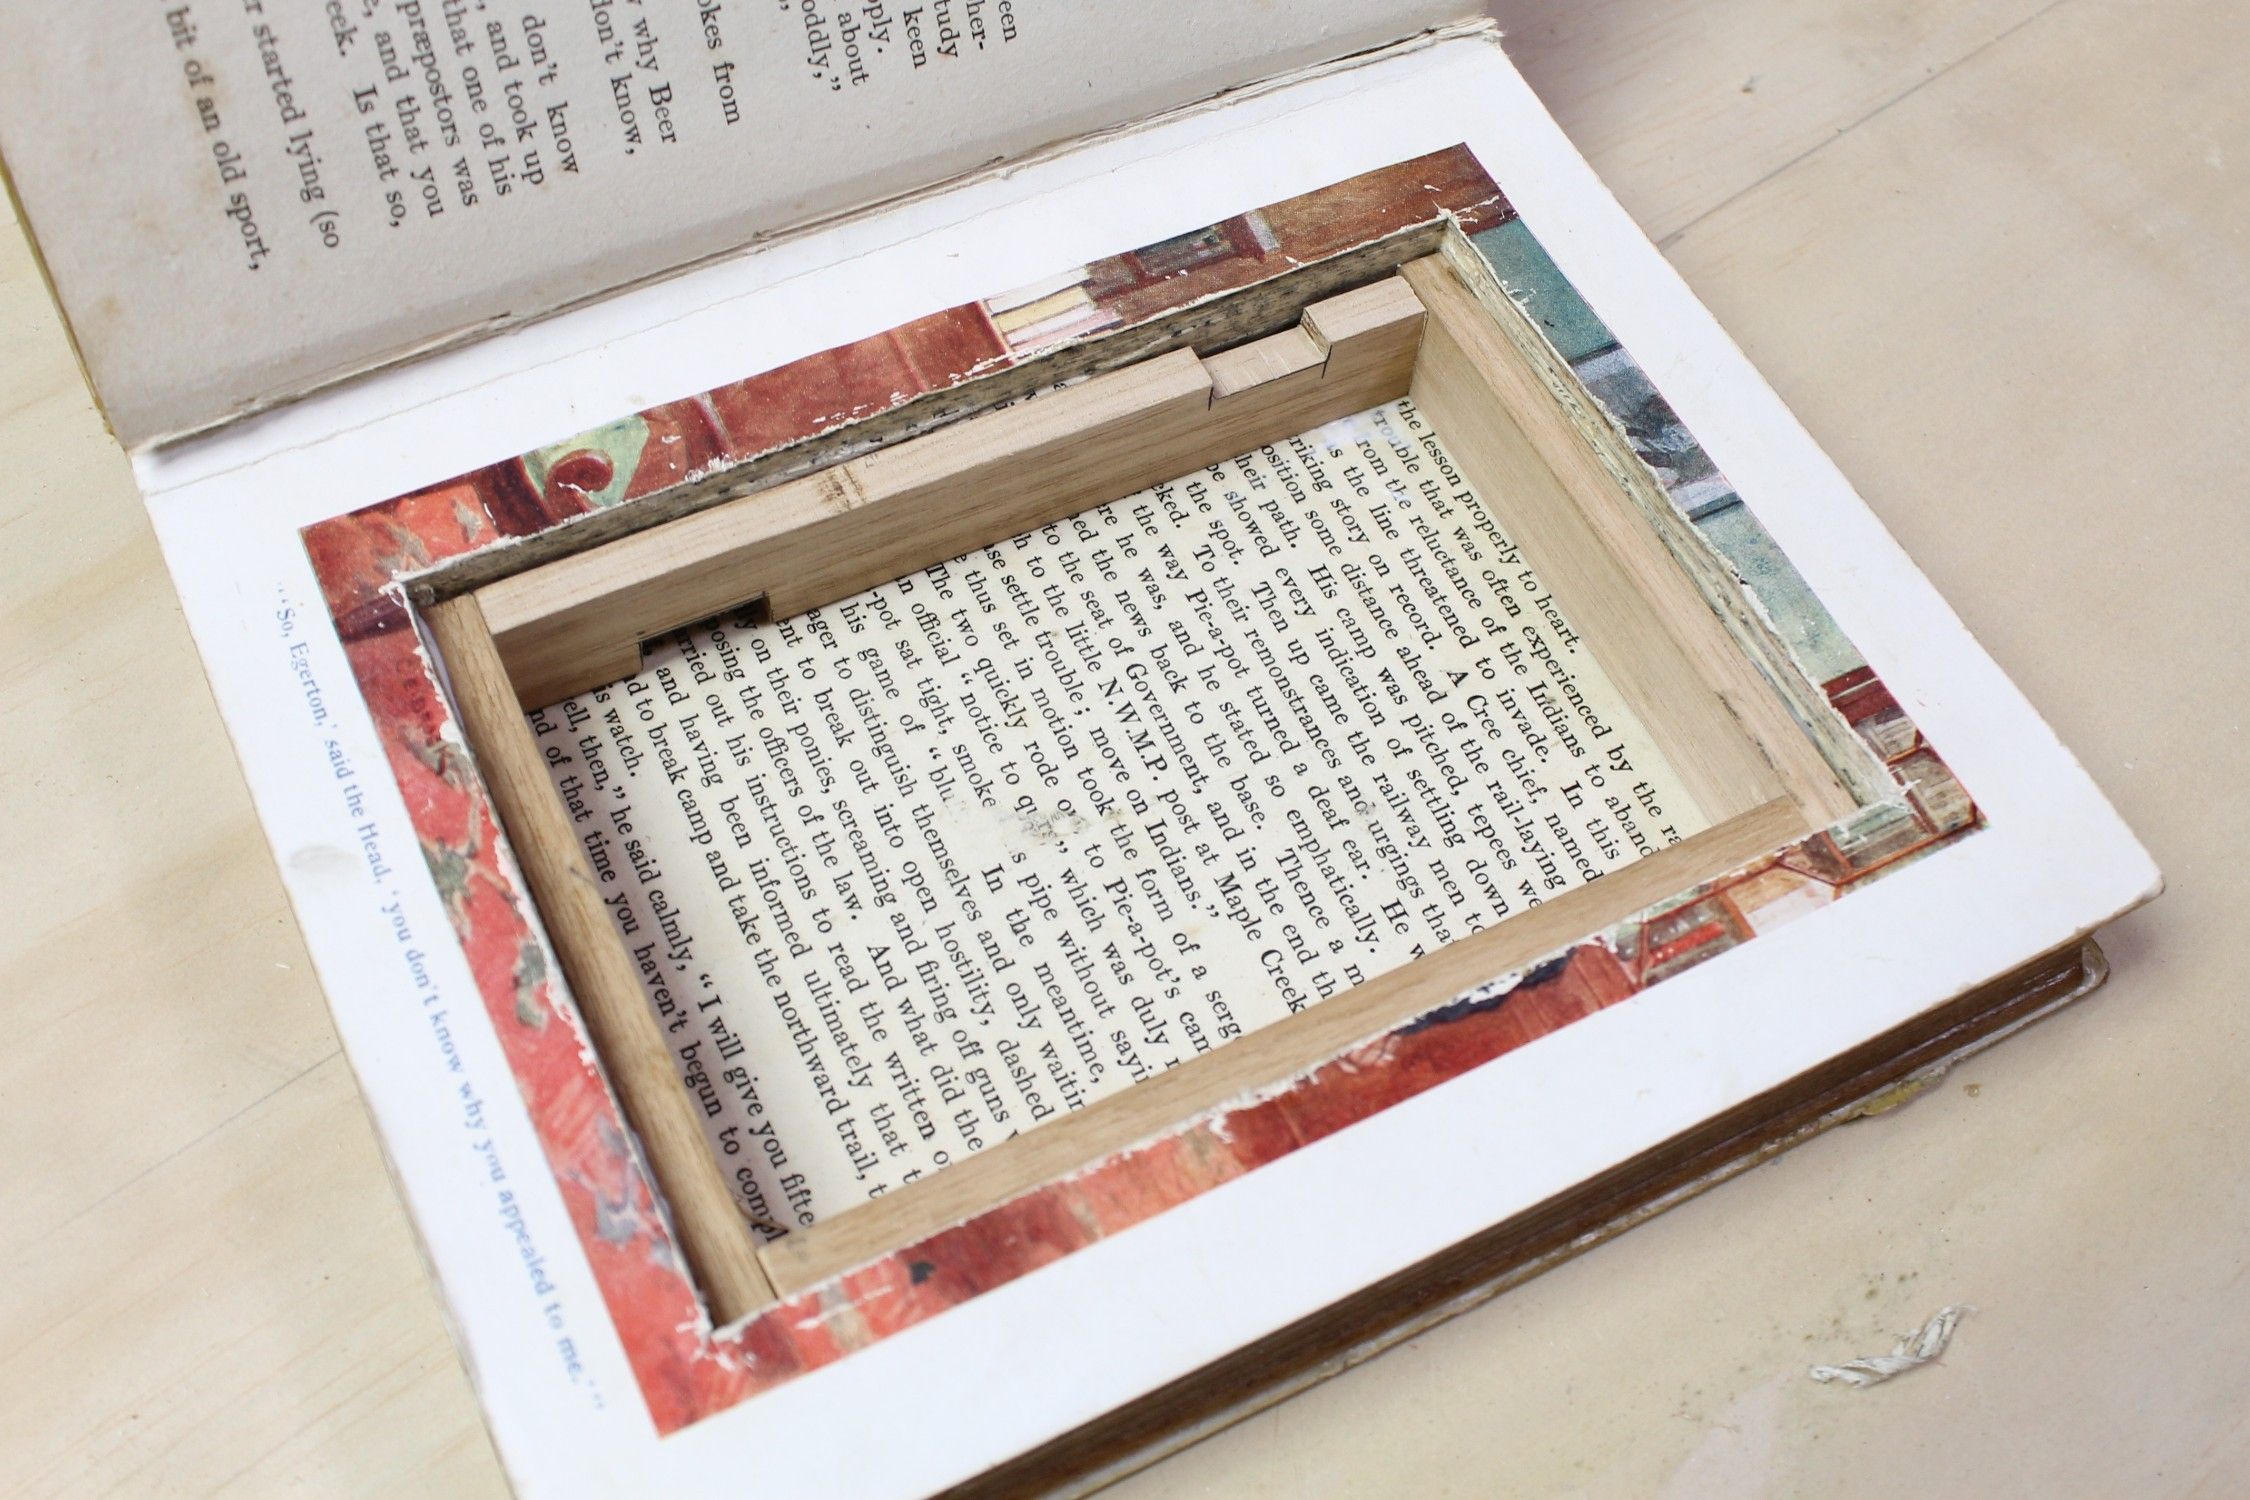 een
her-
tudy
keen
pply.
about
oddly,”
okes from
why Beer
don't know,
don't know
, and took up
that one of his
præpostors was
, and that you
eek. Is that so,
r started lying (so
bit of an old sport,
“‘So, Egerton,’ said the Head, ‘you don't know why you appealed to me.’”
the lesson properly to heart.
trouble that was often experienced by the ra
rom the reluctance of the Indians to aband
s the line threatened to invade. In this
riking story on record. A Cree chief, named
osition some distance ahead of the rail-laying
heir path. His camp was pitched, tepees we
be showed every indication of settling down
the spot. Then up came the railway men to
cked. To their remonstrances and urgings tha
the way Pie-a-pot turned a deaf ear. He w
re he was, and he stated so emphatically.
ned the news back to the base. Thence a m
to the seat of Government, and in the end th
h to the little N.W.M.P. post at Maple Creek
ase settle trouble; move on Indians.”
e thus set in motion took the form of a serg
The two quickly rode ov to Pie-a-pot's cam
n official “notice to qu ,” which was duly r
-pot sat tight, smoke s pipe without sayi
his game of “blu In the meantime,
ager to distinguish themselves and only waitin
ent to break out into open hostility, dashed
y on their ponies, screaming and firing off guns
posing the officers of the law. And what did the
rried out his instructions to read the written o
and having been informed ultimately that t
d to break camp and take the northward trail, t
is watch.
ell, then,” he said calmly, “I will give you fifte
nd of that time you haven't begun to comp